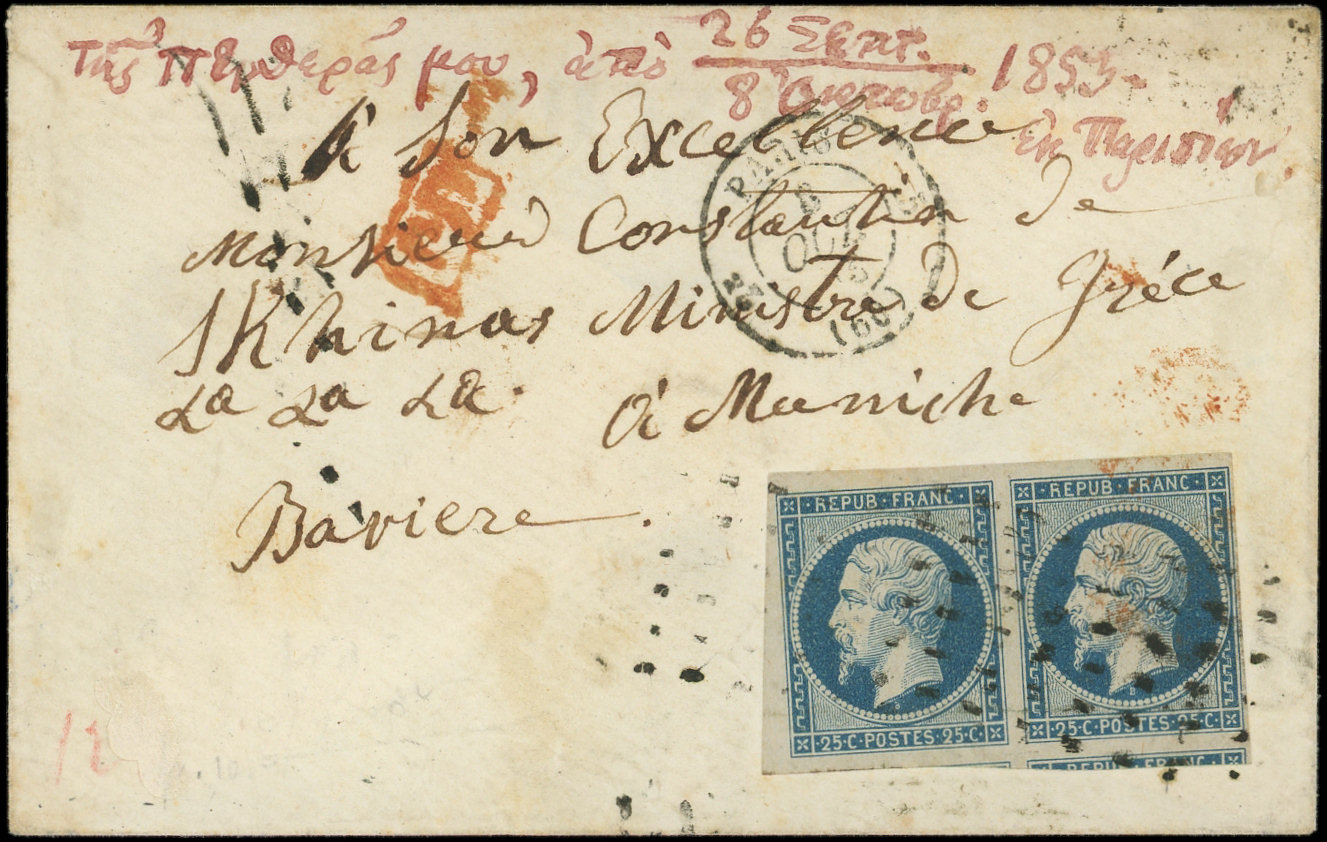 τῆς πενθερᾶς μου, ἀπὸ 26 Σεπτ. 1853.
8 Ὀκτωβρ.
ἐκ Παρισίων.
A Son Excellence
Monsieur Constantin de
SKhinas Ministre de Gréce
à Muniche
Baviere
PD
PARIS
8
OCT
(60)
REPUB·FRANC·
25·C·POSTES·25·C·
REPUB·FRANC·
25·C·POSTES·25·C·
REPUB·FRANC·